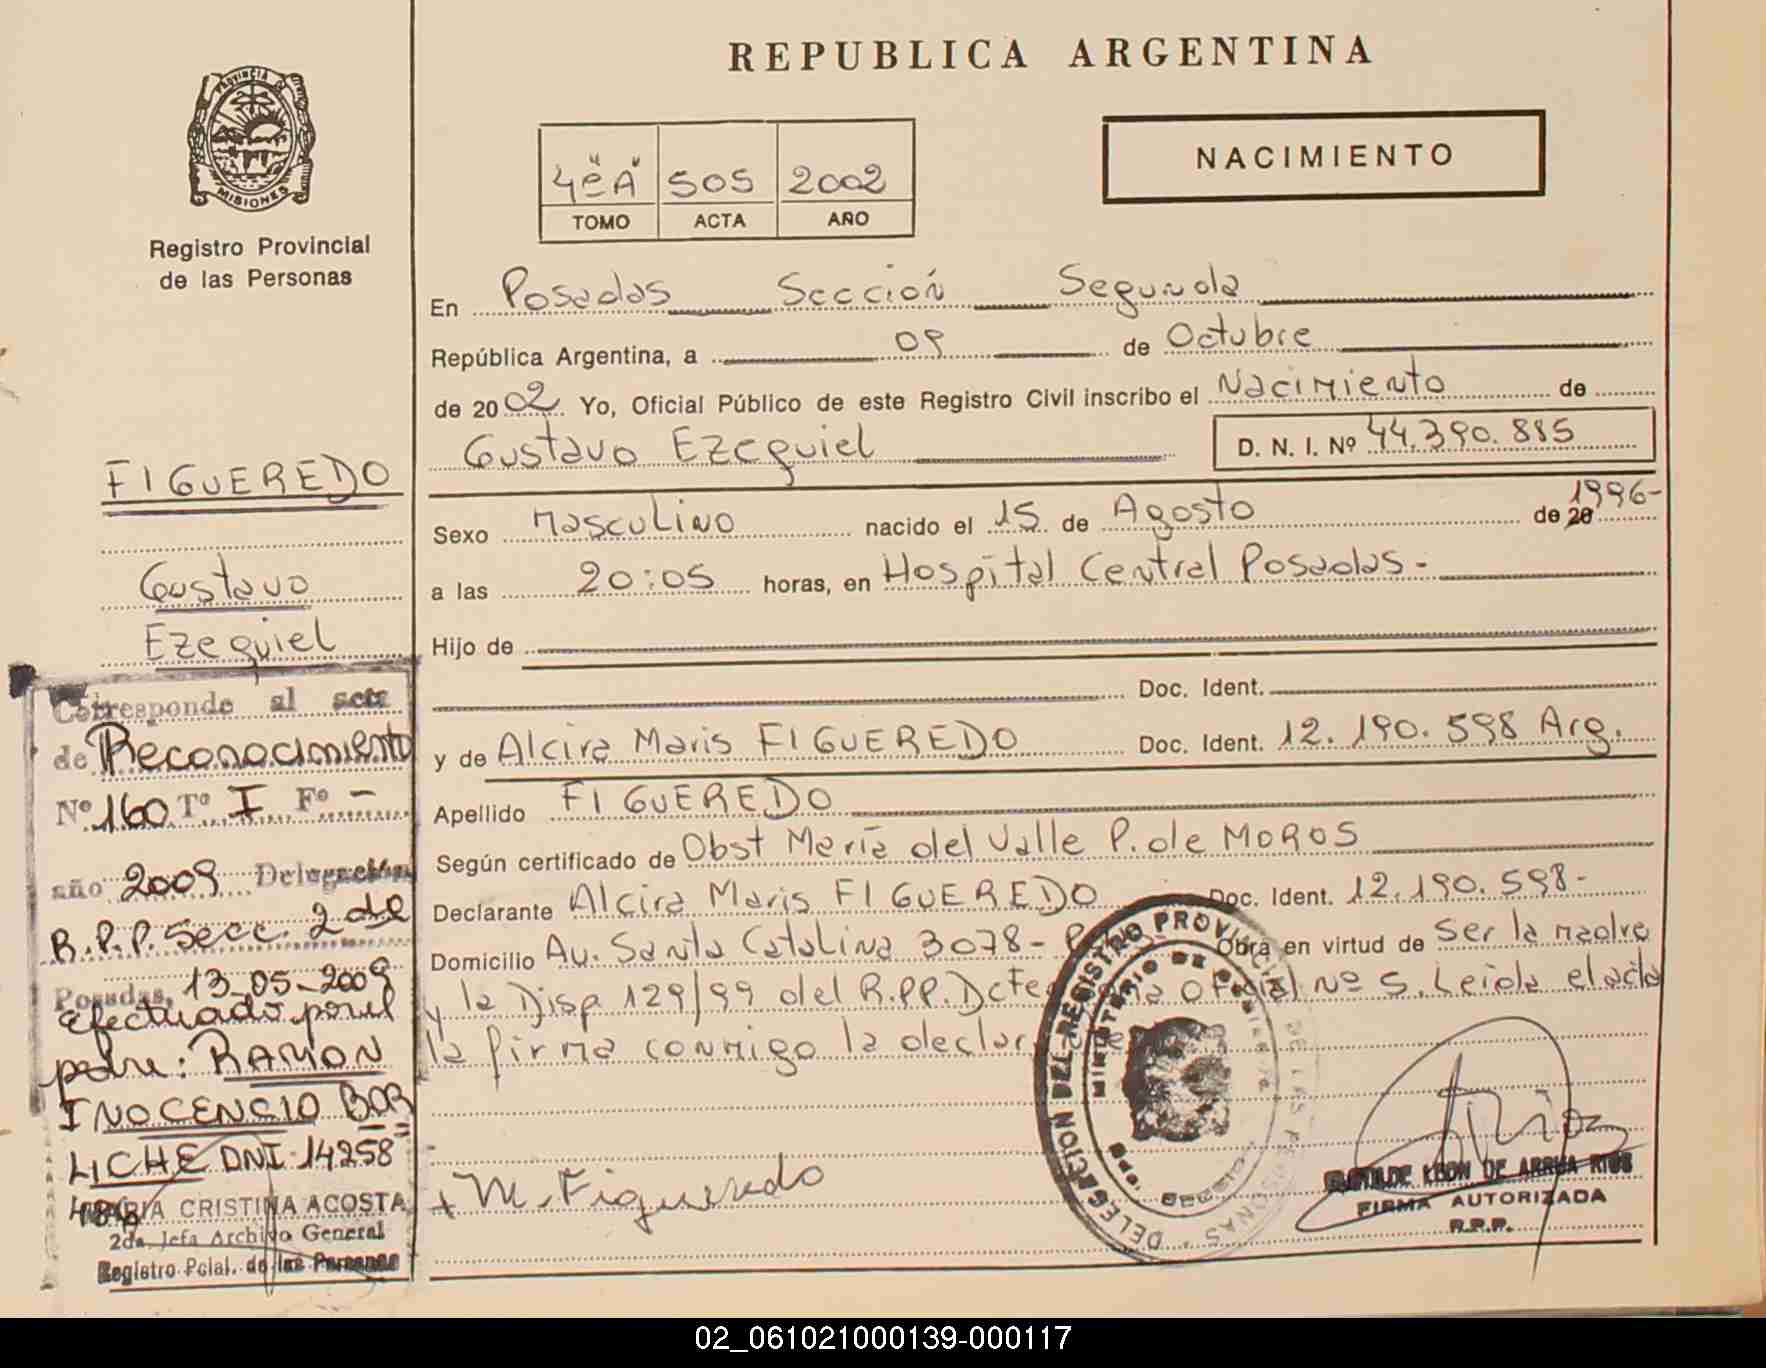 REPUBLICA ARGENTINA
PROVINCIA DE
MISIONES
Registro Provincial
de las Personas
4º "A" 505 2002
TOMO ACTA AÑO
NACIMIENTO
En Posadas Sección Segunda
República Argentina, a 09 de Octubre
de 2002 Yo, Oficial Público de este Registro Civil inscribo el Nacimiento de
Gustavo Ezequiel D. N. I. Nº 44.390.885
Sexo Masculino nacido el 15 de Agosto de 20 1996-
a las 20:05 horas, en Hospital Central Posadas.-
Hijo de
Doc. Ident.
y de Alcira Maris FIGUEREDO Doc. Ident. 12.190.598 Arg.
Apellido FIGUEREDO
Según certificado de Obst María del Valle P. de MOROS
Declarante Alcira Maris FIGUEREDO Doc. Ident. 12.190.598-
Domicilio Av. Santa Catalina 3078- Obra en virtud de Ser la madre
y la Disp 129/99 del R.P.P. Oficial Nº 5. Leída el acta
la firma conmigo la
M. Figueredo
DELEGACION DEL REGISTRO PROVINCIAL DE LAS PERSONAS
MINISTERIO DE GOBIERNO
CLOTILDE LEON DE ARRUA RIOS
FIRMA AUTORIZADA
R.P.P.
FIGUEREDO
Gustavo
Ezequiel
Corresponde al acta
de Reconocimiento
Nº 160 Tº I Fº -
año 2009 Delegación
R.P.P. Secc. 2da
Posadas, 13-05-2009
Efectuado por el
padre: RAMON
INOCENCIO BOR
LICHE DNI 14258
MARIA CRISTINA ACOSTA
2da. Jefa Archivo General
Registro Pcial. de las Personas
02_061021000139-000117